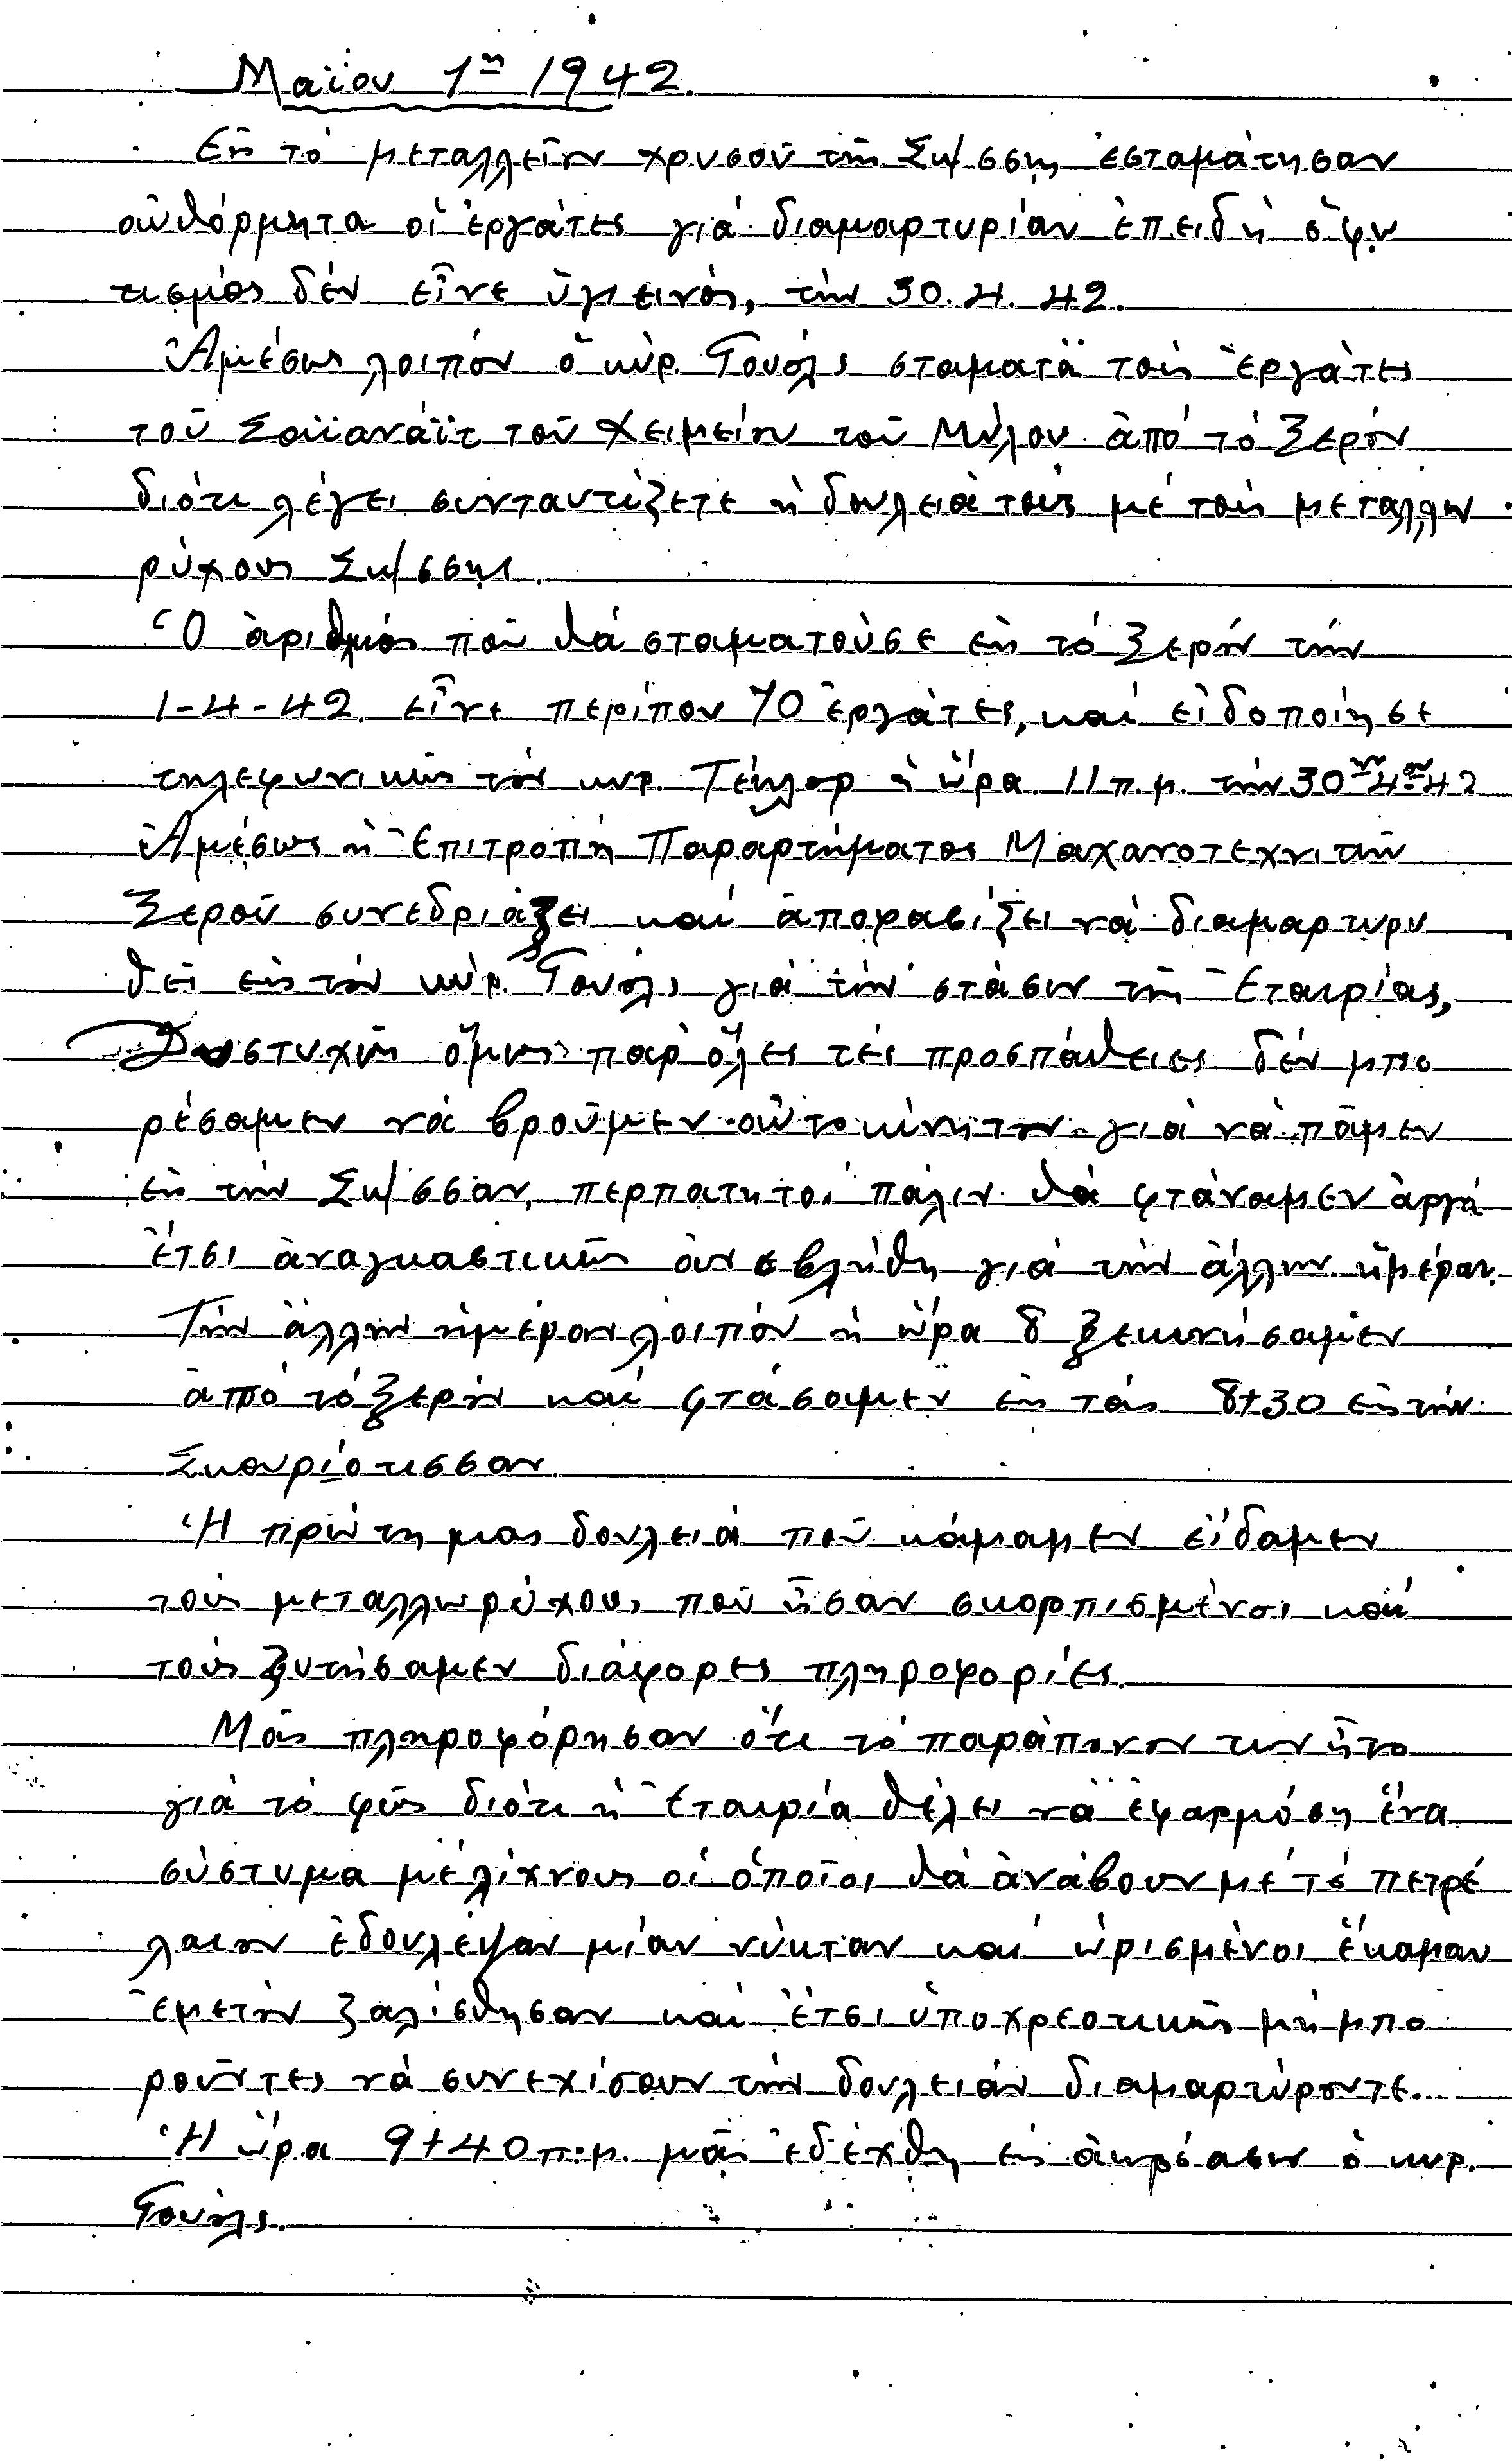 Μαΐου 1η 1942.
Εἰς τὸ μεταλλεῖον χρυσοῦ τῆς Σκ/σσης ἐσταμάτησαν
αὐθόρμητα οἱ ἐργάτες γιά διαμαρτυρίαν ἐπειδὴ ὁ φω
τισμός δέν εἶνε ὑγιεινός, τὴν 30.4.42.
Ἀμέσως λοιπόν ὁ κύρ. Γουόλς σταματᾶ τούς ἐργάτες
τοῦ Σαϊανάϊτ τοῦ Χειμείου τοῦ Μύλου ἀπό τό Ξερόν
διότι λέγει συνταυτίζετε ἡ δουλειά τους μέ τούς μεταλλω
ρύχους Σκ/σσης.
Ὁ ἀριθμός ποῦ θά σταματοῦσε εἰς τό Ξερόν τήν
1-4-42. εἶνε περίπου 70 ἐργάτες, καί εἰδοποίησε
τηλεφωνικῶς τόν κυρ. Τέηλορ ἡ ὥρα 11 π.μ. τήν 30ην 4ου 42
Ἀμέσως ἡ Ἐπιτροπή Παραρτήματος Μαχανοτεχνιτῶν
Ξεροῦ συνεδριάζει καί ἀποφασίζει νά διαμαρτυρυ
θεῖ εἰς τόν κύρ. Γουόλς γιά τήν στάσιν τῆς Ἑταιρίας,
Δυστυχῶς ὅμως παρ' ὅλες τές προσπάθειες δέν μπο
ρέσαμεν νά βροῦμεν αὐτοκίνητον γιά νά πᾶμεν
εἰς τήν Σκ/σσαν, περπατητοί πάλιν θά φτάναμεν ἀργά
ἔτσι ἀναγκαστικῶς ἀνεβλήθη γιά τήν ἄλλην ἡμέραν.
Τήν ἄλλην ἡμέραν λοιπόν ἡ ὥρα 8 ξεκινήσαμεν
ἀπό τό Ξερόν καί φτάσαμεν εἰς τάς 8+30 εἰς τήν
Σκουριότισσαν
Ἡ πρώτη μας δουλειά ποῦ κάμαμεν εἴδαμεν
τούς μεταλλωρύχους ποῦ ἦσαν σκορπισμένοι καί
τούς ζυτήσαμεν διάφορες πληροφορίες.
Μᾶς πληροφόρησαν ὅτι τό παράπονον των ἦτο
γιά τό φῶς διότι ἡ Ἑταιρία θέλει νά ἐφαρμόση ἕνα
σύστυμα μέ λίχνους οἱ ὁποῖοι θά ἀνάβουν μέ τό πετρέ
λαιον ἐδούλεψαν μίαν νύκταν καί ὡρισμένοι ἔκαμαν
ἐμετόν ζαλίσθησαν καί ἔτσι ὑποχρεοτικῶς μή μπο
ροῦντες νά συνεχίσουν τήν δουλειάν διαμαρτύροντε...
Ἡ ὥρα 9+40 π.μ. μᾶς ἐδέχθη εἰς ἀκρόασιν ὁ κυρ.
Γουόλς.